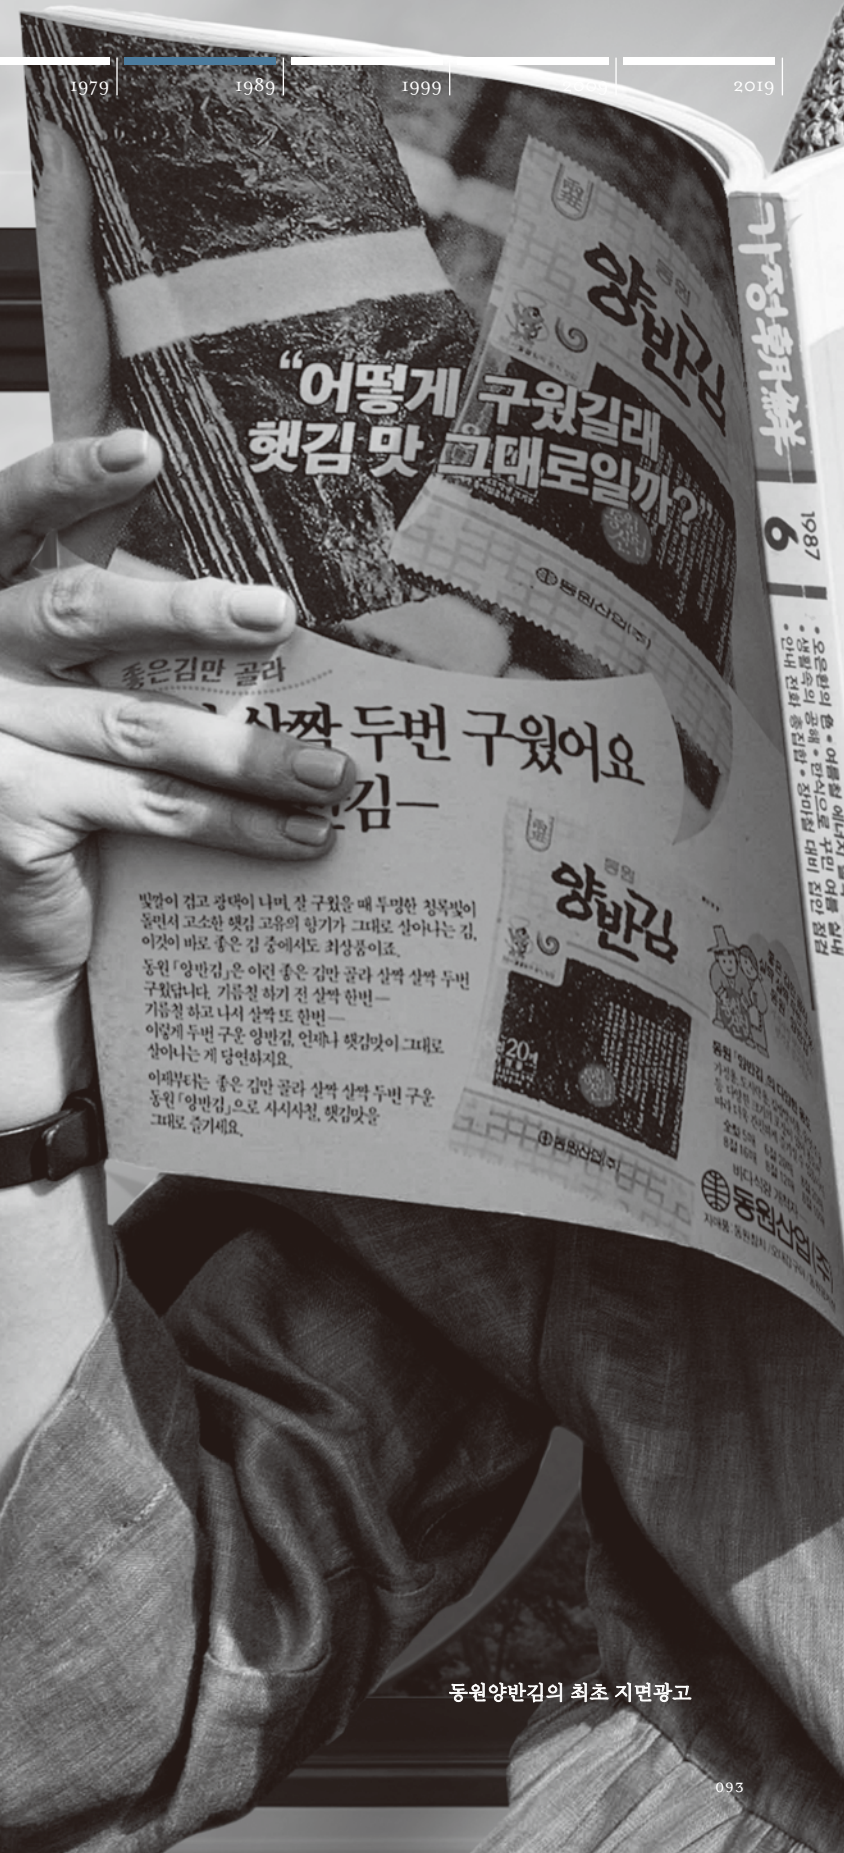 1979
1989
1999
2009
2019
동원
양반김
“어떻게 구웠길래
햇김 맛 그대로일까?”
동원산업(주)
좋은김만 골라
살짝 두번 구웠어요
반김—
빛깔이 검고 광택이 나며, 잘 구웠을 때 투명한 청록빛이
돌면서 고소한 햇김 고유의 향기가 그대로 살아나는 김,
이것이 바로 좋은 김 중에서도 최상품이죠.
동원「양반김」은 이런 좋은 김만 골라 살짝 살짝 두번
구웠답니다. 기름칠 하기 전 살짝 한번—
기름칠 하고 나서 살짝 또 한번—
이렇게 두번 구운 양반김, 언제나 햇김맛이 그대로
살아나는 게 당연하지요.
이제부터는 좋은 김만 골라 살짝 살짝 두번 구운
동원「양반김」으로 사시사철, 햇김맛을
그대로 즐기세요.
동원
양반김
동원산업(주)
동원산업(주)
가정朝鮮
1987
6
• 생활속의 공해 • 한식으로 꾸민 여름 실내
• 안내 전화 총집합 • 장마철 대비 집안 점검
동원양반김의 최초 지면광고
093